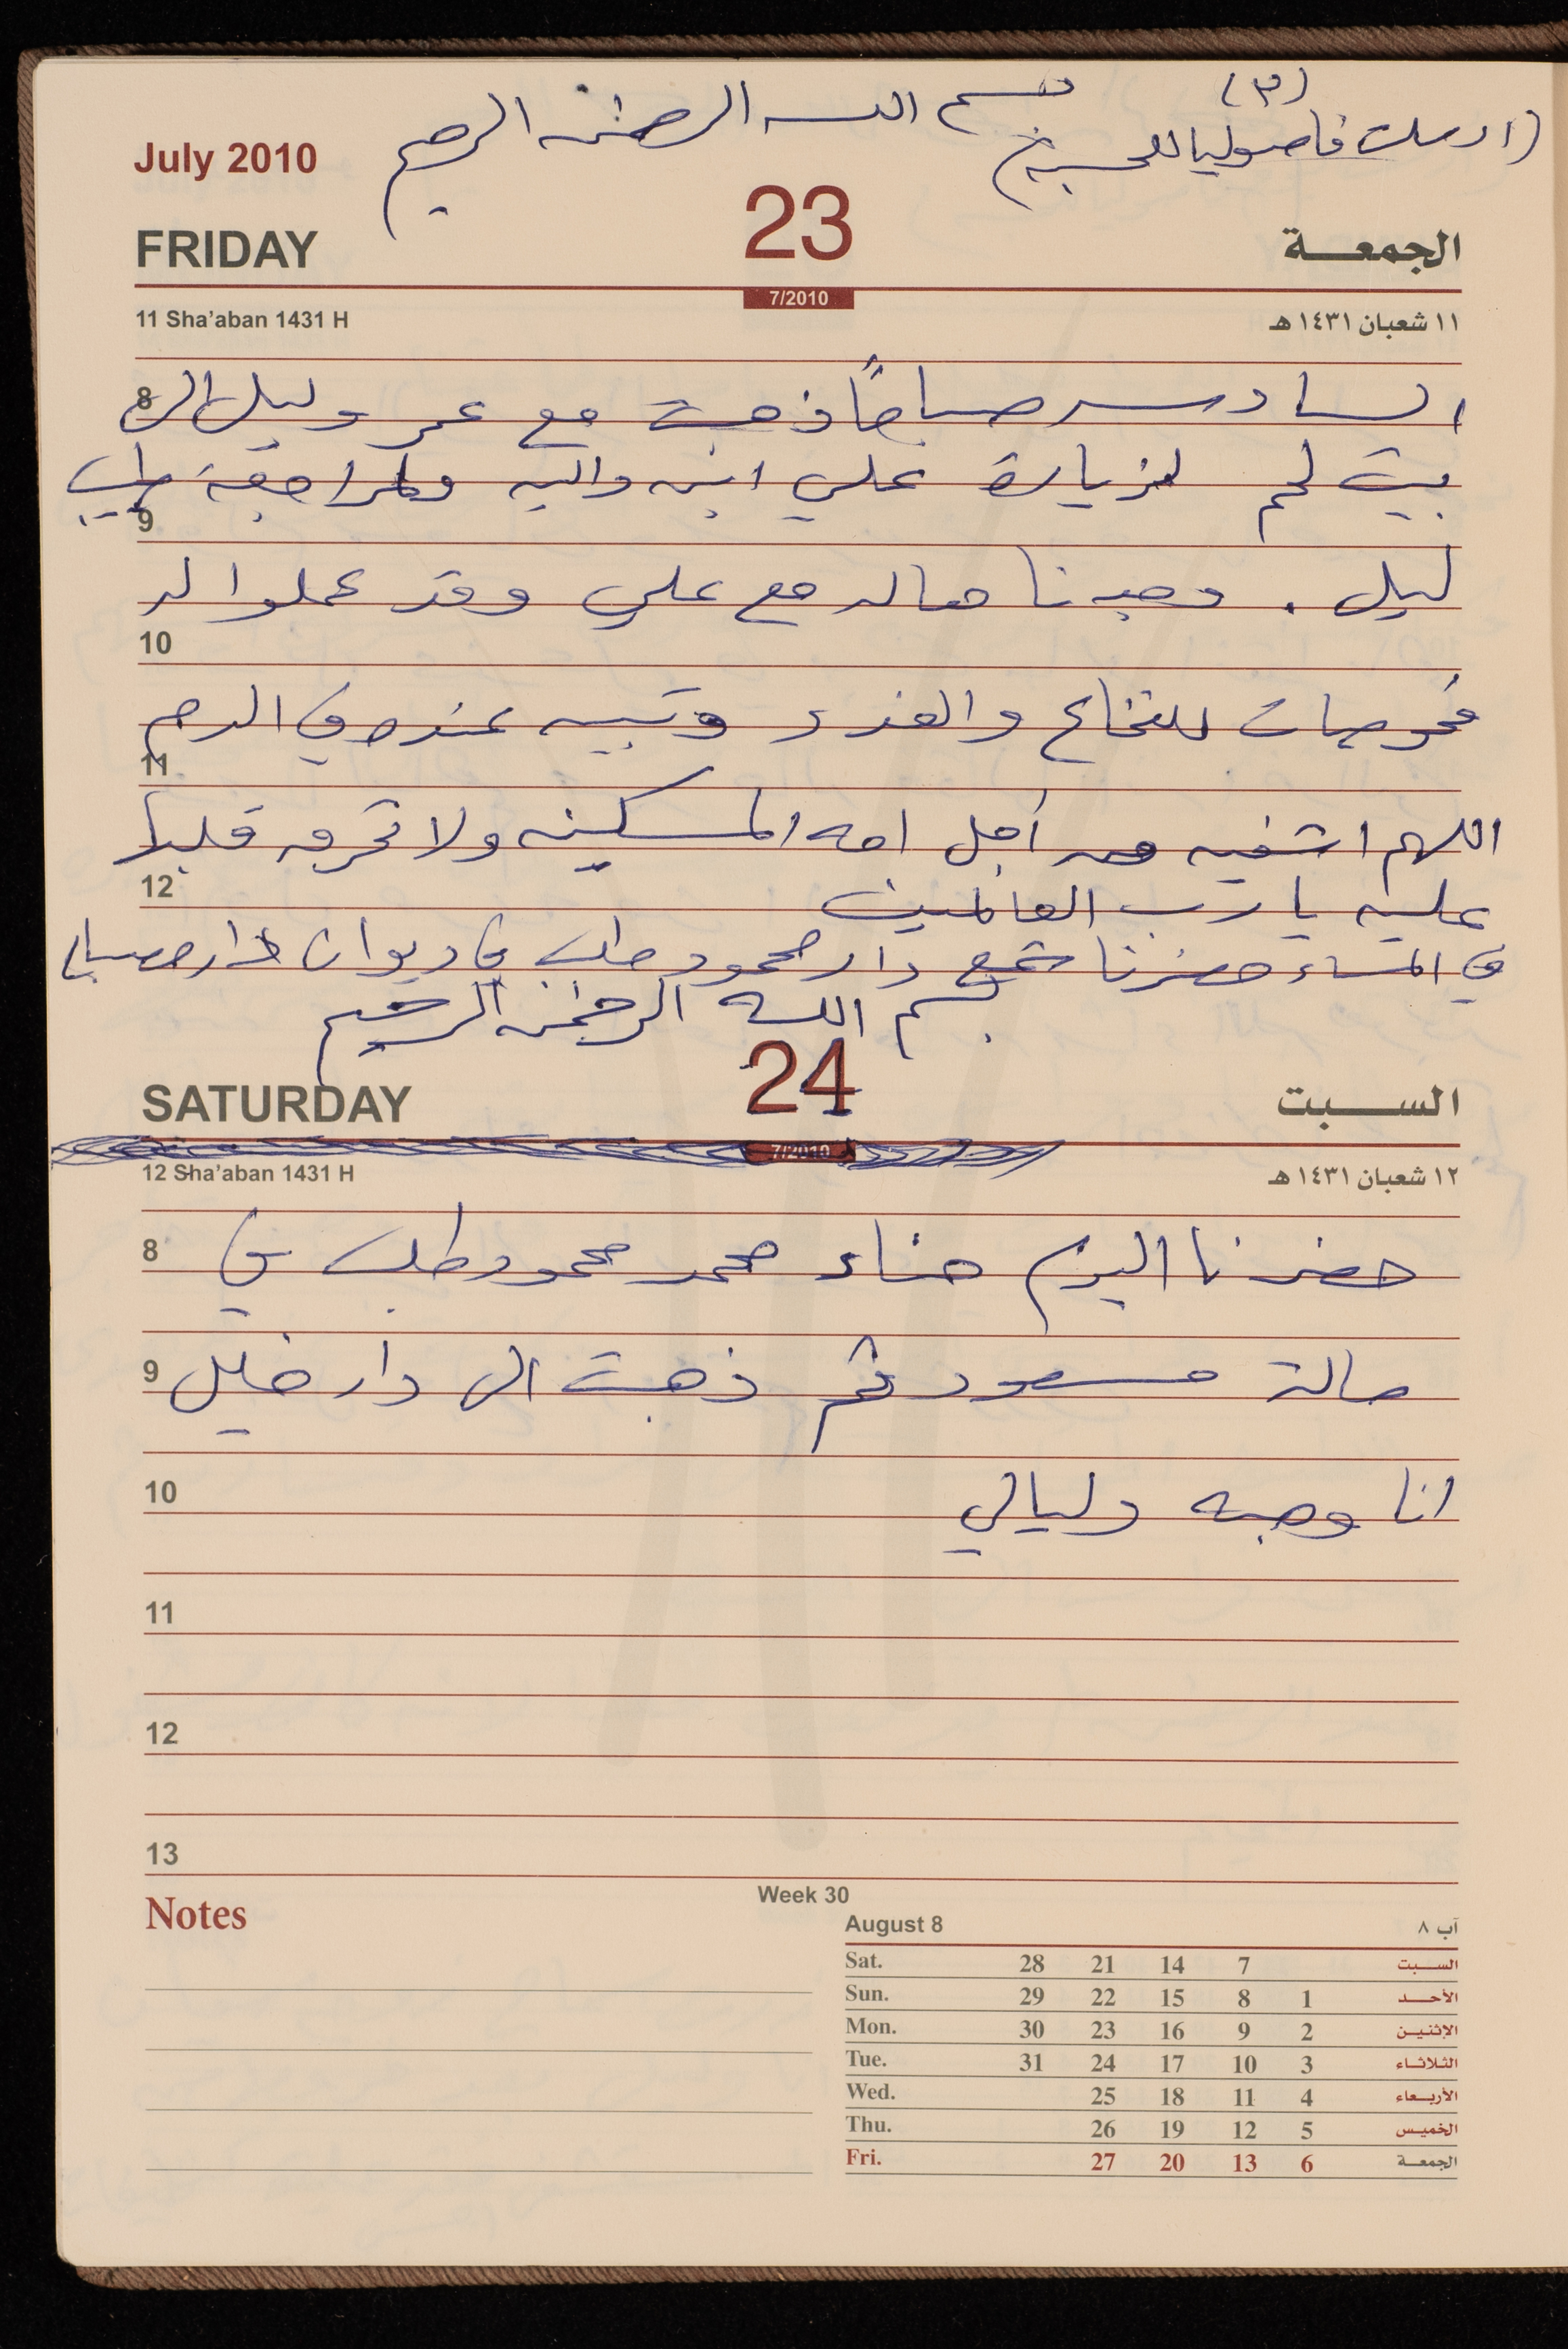 (٣)
بسم الله الرحمن الرحيم
(ارسلت فاصوليا للحسبة)
July 2010
23
FRIDAY
الجمعة
7/2010
11 Sha'aban 1431 H
١١ شعبان ١٤٣١ هـ
السادسة صباحاً ذهبت مع عمر وليل الى
8
بيت لحم لزيارة علي ابن دالية ولمراجعة طبيب
9
ليل . وجدنا حاله مع علي وقد عملوا له
10
فحوصات للنخاع والغدد وتبين عنده في الدم
11
اللهم اشفيه من أجل امه المسكينه ولا تحرق قلبها
12
عليه يا رب العالمين
في المساء حضرنا شمع دار محمود طلب في ديوان دار
بسم الله الرحمن الرحيم
24
SATURDAY
السبت
7/2010
12 Sha'aban 1431 H
١٢ شعبان ١٤٣١ هـ
8
حضرنا اليوم حناء محمد محمود طلب في
9
صالة مسعود ثم ذهبت الى دار خليل
10
انا وجبه وليالي
11
12
13
Notes
Week 30
August 8
آب ٨
Sat. 28 21 14 7 السبت
Sun. 29 22 15 8 1 الأحد
Mon. 30 23 16 9 2 الإثنين
Tue. 31 24 17 10 3 الثلاثاء
Wed. 25 18 11 4 الأربعاء
Thu. 26 19 12 5 الخميس
Fri. 27 20 13 6 الجمعة